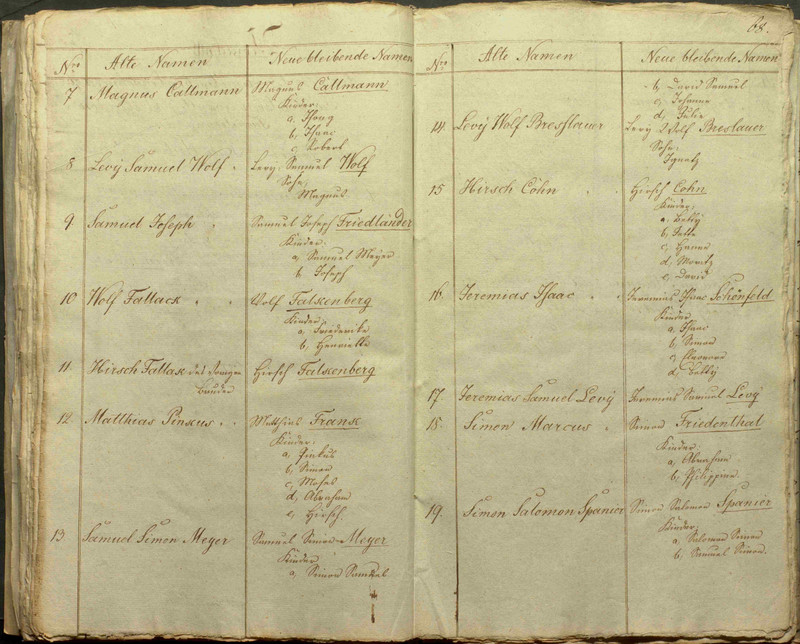 Nro Alte Namen Neue bleibende Namen
7 Magnus Callmann Magnus Callmann
Kinder:
a, Isaac
c, Robert
8 Levÿ Samuel Wolf Levy Samuel Wolf
Sohn,
Magnus
9. Samuel Joseph Samuel Joseph Friedländer
Kinder.
a, Samuel Meyer
b, Joseph
10 Wolf Fallack Wolf Falkenberg
Kinder,
a, Friederike
b, Henriette
11. Hirsch Fallak des Vorigen Hirsch Falkenberg
Bruder
12. Matthias Pinkus Matthias Frank
Kinder,
a, Pinkus
b, Simon
c, Moses
d, Abraham
e, Hirsch.
13 Samuel Simon Meyer Samuel Simon Meyer
Kinder
a, Simon Samuel
68.
Nro Alte Namen Neue bleibende Namen
b, David Samuel
c, Johanne
d, Julie
14. Levÿ Wolf Bresslauer Levy Wolf Breslauer
Sohn,
Ignatz
15 Hirsch Cohn Hirsch Cohn
Kinder,
a, Betty
c, Hanne
d, Moritz
e, David
16. Jeremias Isaac Jeremias Isaac Schönfeld
Kinder
a, Isaac
b, Simon
c, Eleonore
d, Betty
17. Jeremias Samuel Levÿ Jeremias Samuel Levÿ
18. Simon Marcus Simon Friedenthal
Kinder
a, Abraham
b, Philippine.
19. Simon Salomon Spanier Simon Salomon Spanier
Kinder,
a, Salomon Simon
b, Samuel Simon.